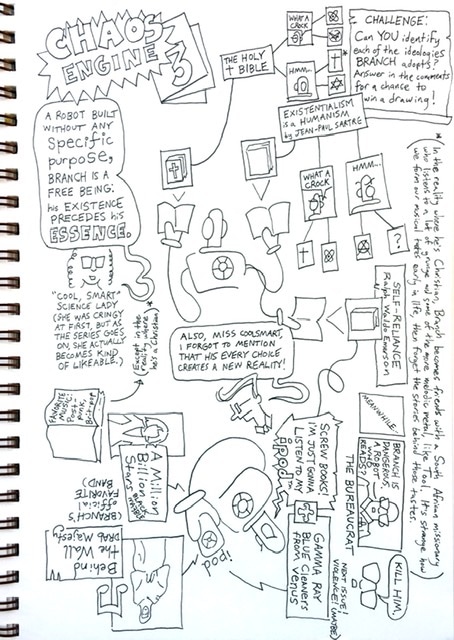 CHAOS
ENGINE
3
A ROBOT BUILT
WITHOUT ANY
Specific
purpose,
BRANCH IS A
FREE BEING:
his EXISTENCE
PRECEDES his
ESSENCE.
THE HOLY
+ BIBLE
WHAT A
CROCK
HMM...
*
CHALLENGE:
Can YOU identify
each of the ideologies
BRANCH adopts?
Answer in the comments
for a chance to
win a drawing!
EXISTENTIALISM
is a HUMANISM
by JEAN-PAUL SARTRE
WHAT A
CROCK
HMM...
?
!
* In the reality where he's Christian, Branch becomes friends with a South African missionary
who listens to a lot of grunge and some of the more melodic metal, like Tool. It's strange how
we form our musical tastes early in life, then forget the stories behind those tastes.
"COOL, SMART"
SCIENCE LADY
(SHE WAS CRINGY
AT FIRST, BUT AS
THE SERIES GOES
ON, SHE ACTUALLY
BECOMES KIND
OF LIKEABLE..)
Except in the
reality where
he's a Christian *
ALSO, MISS COOLSMART,
I FORGOT TO MENTION
THAT HIS EVERY CHOICE
CREATES A NEW REALITY!
SELF-RELIANCE
Ralph Waldo Emerson
MEANWHILE:
BRANCH IS
DANGEROUS.
A ROBOT
READS?
THE BUREAUCRAT
KILL HIM.
NEXT ISSUE:
VIOLENCE! (MAYBE)
FAVORITE
MUSIC:
Post-
punk,
Britpop
SCREW BOOKS!
I'M JUST GONNA
LISTEN TO MY
iPOD!
A Million
Billion
Stars
(BRANCH'S
official
FAVORITE
BAND)
ipod
GAMMA RAY
BLUE CLEANERS
from VENUS
Behind
the Wall
DRAB MAJESTY